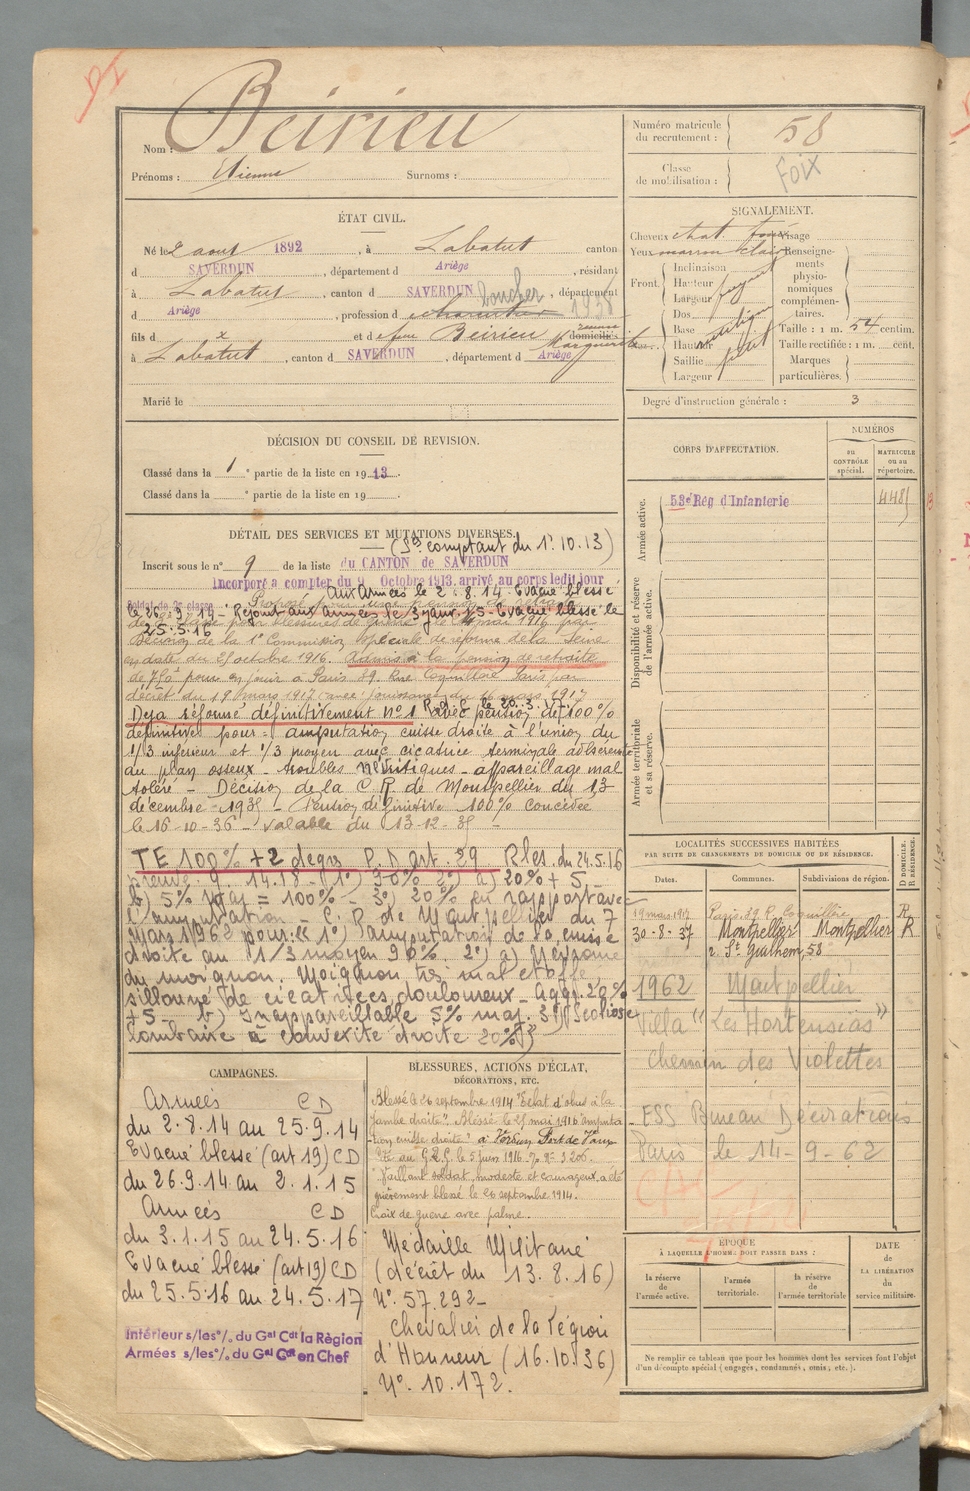 Nom : Beirieu
Prénoms : Etienne Surnoms :
ÉTAT CIVIL.
Né le 2 aout 1892, à Labatut canton
d SAVERDUN, département d Ariège, résidant
à Labatut, canton d SAVERDUN, département
d Ariège, profession d charcutier boucher 1938
fils d x et de feue Beirieu Marguerite domiciliés
à Labatut, canton d SAVERDUN, département d Ariège
Marié le
DÉCISION DU CONSEIL DE REVISION.
Classé dans la 1e partie de la liste en 1913.
Classé dans la e partie de la liste en 19 .
DÉTAIL DES SERVICES ET MUTATIONS DIVERSES.
(Ss comptant du 1.10.13)
Inscrit sous le n° 9 de la liste du CANTON de SAVERDUN
Incorporé à compter du 9 Octobre 1913, arrivé au corps ledit jour
Soldat de 2e classe
aux Armées le 2.8.14 - Evacué blessé
le 26.9.14 - Rejoint aux armées le 3 janv. 15 - Evacué blessé le
25.5.16
pour blessures de guerre le mai 1916 par
Décision de la 1e Commission spéciale de réforme de la Seine
en date du 25 octobre 1916. Admis à la pension de retraite
de 750f pour en jouir à Paris 39 Rue Coquillère Paris par
décret du 19 mars 1917 avec jouissance du 16 mars 1917
Déjà réformé définitivement n° 1 avec pension de 100%
définitive pour = amputation cuisse droite à l'union du
1/3 inférieur et 1/3 moyen avec cicatrice terminale adhérente
au plan osseux - troubles névritiques - appareillage mal
toléré - Décision de la C.R. de Montpellier du 13
décembre 1935 - Pension définitive 100% concédée
le 16-10-36 - valable du 13-12-35 -
TE 100% + 2 degrs P.D art. 29 Rles. du 24.5.16
preuve. G. 14.18 - (1°) 90% 2°) a) 20% + 5 -
b) 5% maj = 100% - 3°) 20% en rapport avec
l'amputation - C.R. de Montpellier du 7
Mars 1962 pour: « 1°) amputation de la cuisse
droite au 1/3 moyen 90%. 2°) a) Névrome
du moignon. Moignon très mal étoffé
sillonné de cicatrices douloureux - aggr. 20%
+ 5 - b) Inappareillable 5% maj. 3°) Scoliose
lombaire à convexité droite 20%
CAMPAGNES.
Armées CD
du 2.8.14 au 25.9.14
Evacué blessé (art 19) CD
du 26.9.14 au 2.1.15
Armées CD
du 3.1.15 au 24.5.16
Evacué blessé (art 19) CD
du 25.5.16 au 24.5.17
Intérieur s/les °/. du Gal Cdt la Région
Armées s/les °/. du Gal Cdt en Chef
BLESSURES, ACTIONS D'ÉCLAT,
DÉCORATIONS, ETC.
Blessé le 26 septembre 1914 "Eclat d'obus à la
jambe droite". Blessé le 25 mai 1916 "amputa-
tion cuisse droite" à Verdun Fort de Vaux
Cité au G.Q.G. le 5 juin 1916. n° 3206.
"Vaillant soldat, modeste et courageux, a été
grièvement blessé le 26 septembre 1914.
Croix de guerre avec palme.
Médaille Militaire
(décret du 13.8.16)
N° 57.292 -
Chevalier de la Légion
d'Honneur (16.10.36)
N° 10.172.
Numéro matricule
du recrutement : 58
Classe
de mobilisation : Foix
SIGNALEMENT.
Cheveux chat. foncé Visage
Yeux marron clair
Renseigne-
ments
physio-
nomiques
complémen-
taires.
Front. Inclinaison
Hauteur
Largeur
Dos
Base
Hauteur
Saillie
Largeur
Taille : 1 m. 54 centim.
Taille rectifiée : 1 m. cent.
Marques
particulières.
Degré d'instruction générale : 3
CORPS D'AFFECTATION.
NUMÉROS
AU CONTRÔLE spécial.
MATRICULE ou au répertoire.
Armée active.
53e Rég d'Infanterie 4485
Disponibilité et réserve
de l'armée active.
Armée territoriale
et sa réserve.
LOCALITÉS SUCCESSIVES HABITÉES
PAR SUITE DE CHANGEMENTS DE DOMICILE OU DE RÉSIDENCE.
Dates. Communes. Subdivisions de région. D DOMICILE. R RÉSIDENCE.
19 mars 1917 Paris 39 R Coquillère R
30-8-37 Montpellier Montpellier R
r. St Guilhem, 58
1962 Montpellier
Villa "Les Hortensias"
chemin des Violettes
ESS Bureau Décorations
Paris le 14-9-62
ÉPOQUE
À LAQUELLE L'HOMME DOIT PASSER DANS :
la réserve de l'armée active.
l'armée territoriale.
la réserve de l'armée territoriale
DATE
de
LA LIBÉRATION
du
service militaire.
Ne remplir ce tableau que pour les hommes dont les services font l'objet
d'un décompte spécial (engagés, condamnés, omis, etc.).